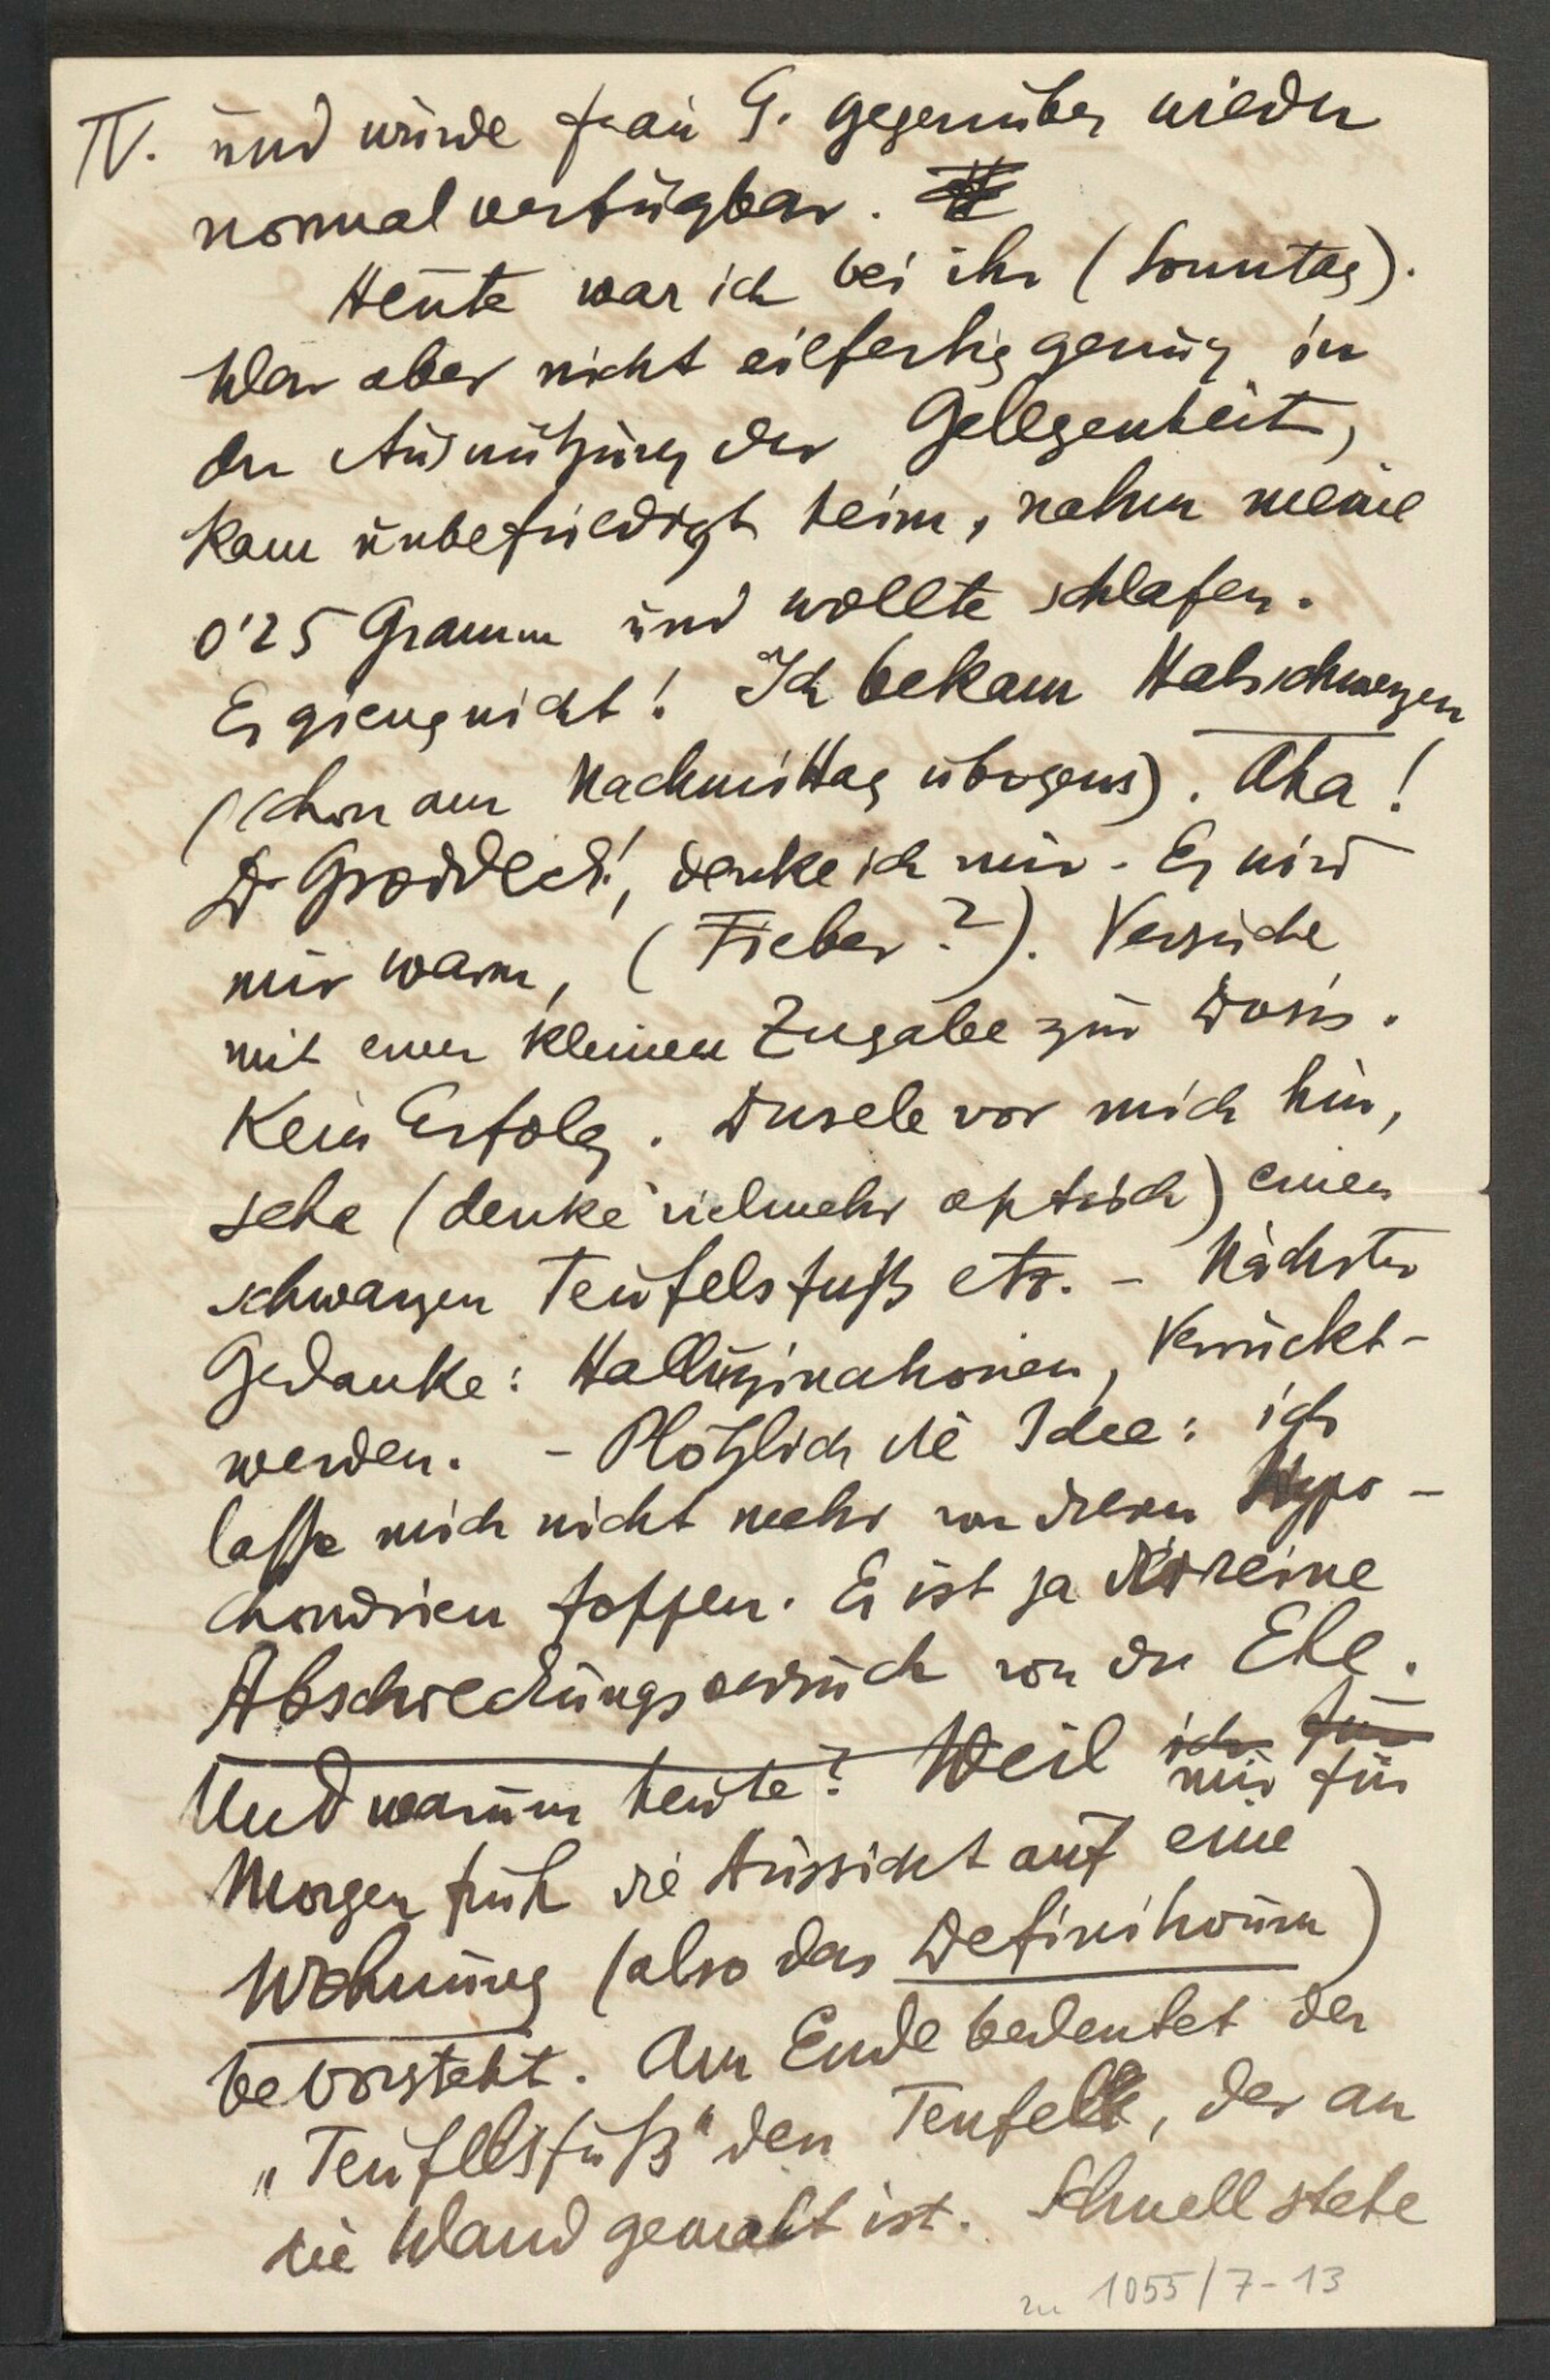 IV. und würde Frau G. gegenüber wieder
normal verfügbar.
Heute war ich bei ihr (Sonntag).
War aber nicht eilfertig genug in
der Ausnützung der Gelegenheit,
kam unbefriedigt heim, nahm meine
0'25 Gramm und wollte schlafen.
Es gieng nicht! Ich bekam Halsschmerzen
(schon am Nachmittag übrigens). Aha!
Dr Groddeck!, denke ich mir. Es wird
mir warm, (Fieber?). Versuche
mit einer kleinen Zugabe zur Dosis.
Kein Erfolg. Dusele vor mich hin,
sehe (denke vielmehr optisch) einen
schwarzen Teufelsfuß etz. - Nächster
Gedanke: Halluzinationen, Verrückt-
werden. - Plötzlich die Idee: ich
lasse mich nicht mehr von diesen Hypo-
chondrien foppen. Es ist ja eine
Abschreckungsversuch von der Ehe.
Und warum heute? Weil ich für
mir für
Morgen früh die Aussicht auf eine
Wohnung (also das Definitivum)
bevorsteht. Am Ende bedeutet der
„Teufelsfuß" den Teufel, der an
die Wand gemalt ist. Schnell stehe
zu 1055/7-13